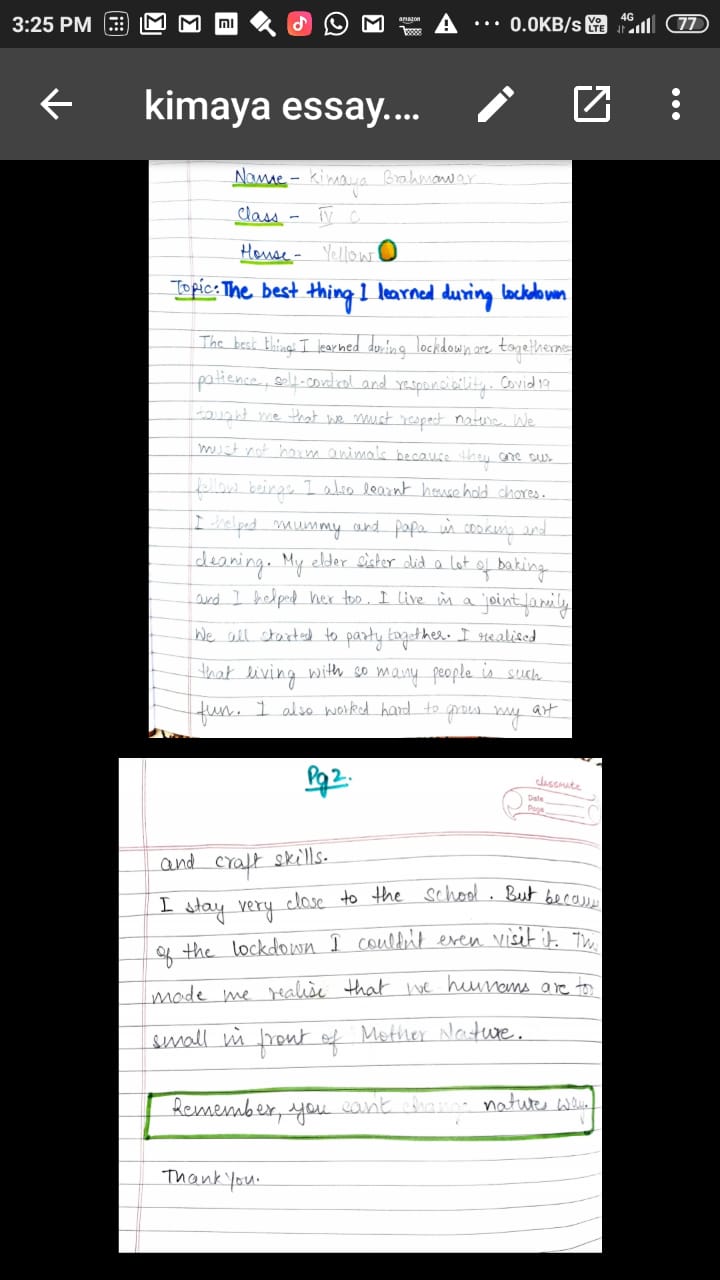 3:25 PM 0.0KB/s Vo LTE 4G 77
kimaya essay....
Name - Kimaya Brahmawar
Class - IV C
House - Yellow
Topic: The best thing I learned during lockdown
The best things I learned during lockdown are togethernes
patience, self-control and responcibility. Covid 19
taught me that we must respect nature. We
must not harm animals because they are our
fellow beings I also learnt household chores.
I helped mummy and papa in cooking and
cleaning. My elder sister did a lot of baking
and I helped her too. I live in a joint family
We all started to party together. I realised
that living with so many people is such
fun. I also worked hard to grow my art
Pg 2.
classmate
Date
Page
and craft skills.
I stay very close to the school. But becaus
of the lockdown I couldn't even visit it. Thi
made me realise that we humans are too
small in front of Mother Nature.
Remember, you can't change natures way.
Thank You.